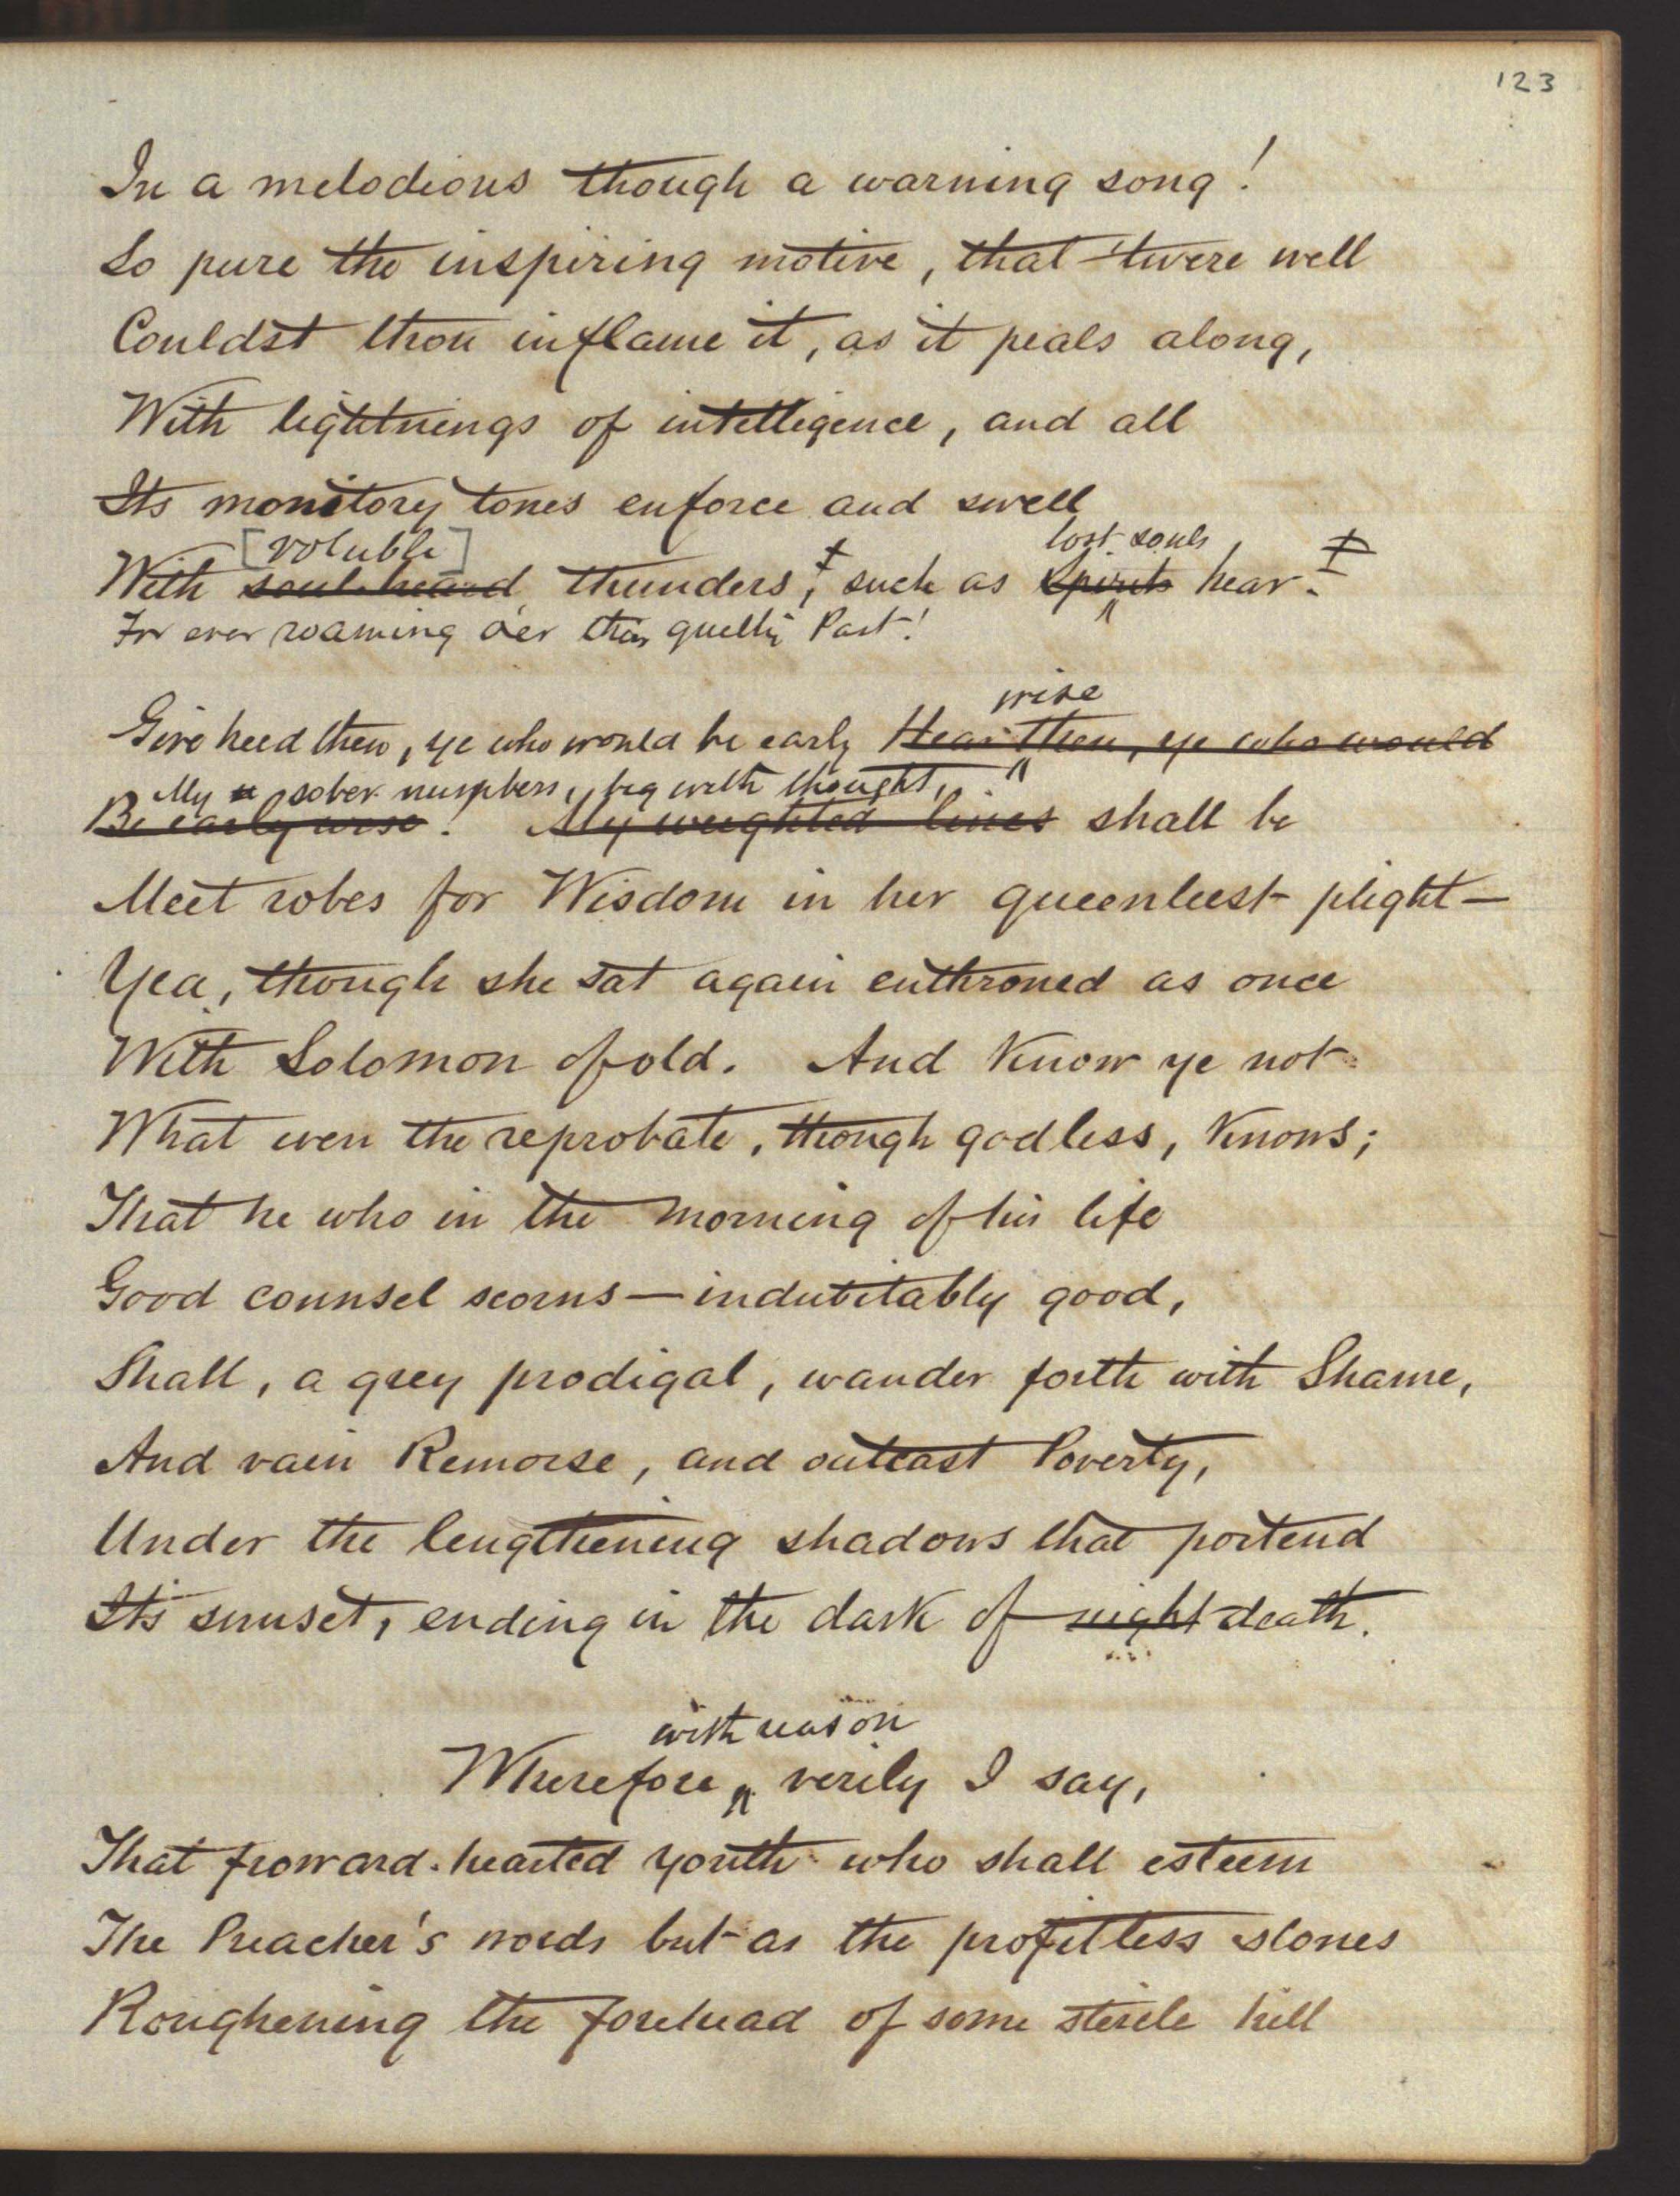 123
In a melodious though a warning song!
So pure the inspiring motive, that 'twere well
Couldst thou inflame it, as it peals along,
With lightnings of intelligence, and all
Its monitory tones enforce and swell
[voluble] lost souls
With soul-heard thunders, such as spirits hear.
For ever roaming o'er their guilty Past!
wise
Give heed then, ye who would be early Hear then, ye who would
My sober numbers, big with thought,
Be early wise! My weighted lines shall be
Meet robes for Wisdom in her queenliest plight—
Yea, though she sat again enthroned as once
With Solomon of old. And know ye not
What even the reprobate, though godless, knows;
That he who in the morning of his life
Good counsel scorns—indubitably good,
Shall, a grey prodigal, wander forth with Shame,
And vain Remorse, and outcast Poverty,
Under the lengthening shadows that portend
Its sunset, ending in the dark of night death.
with reason
Wherefore, verily I say,
That froward-hearted youth who shall esteem
The Preacher's words but as the profitless stones
Roughening the forehead of some sterile hill